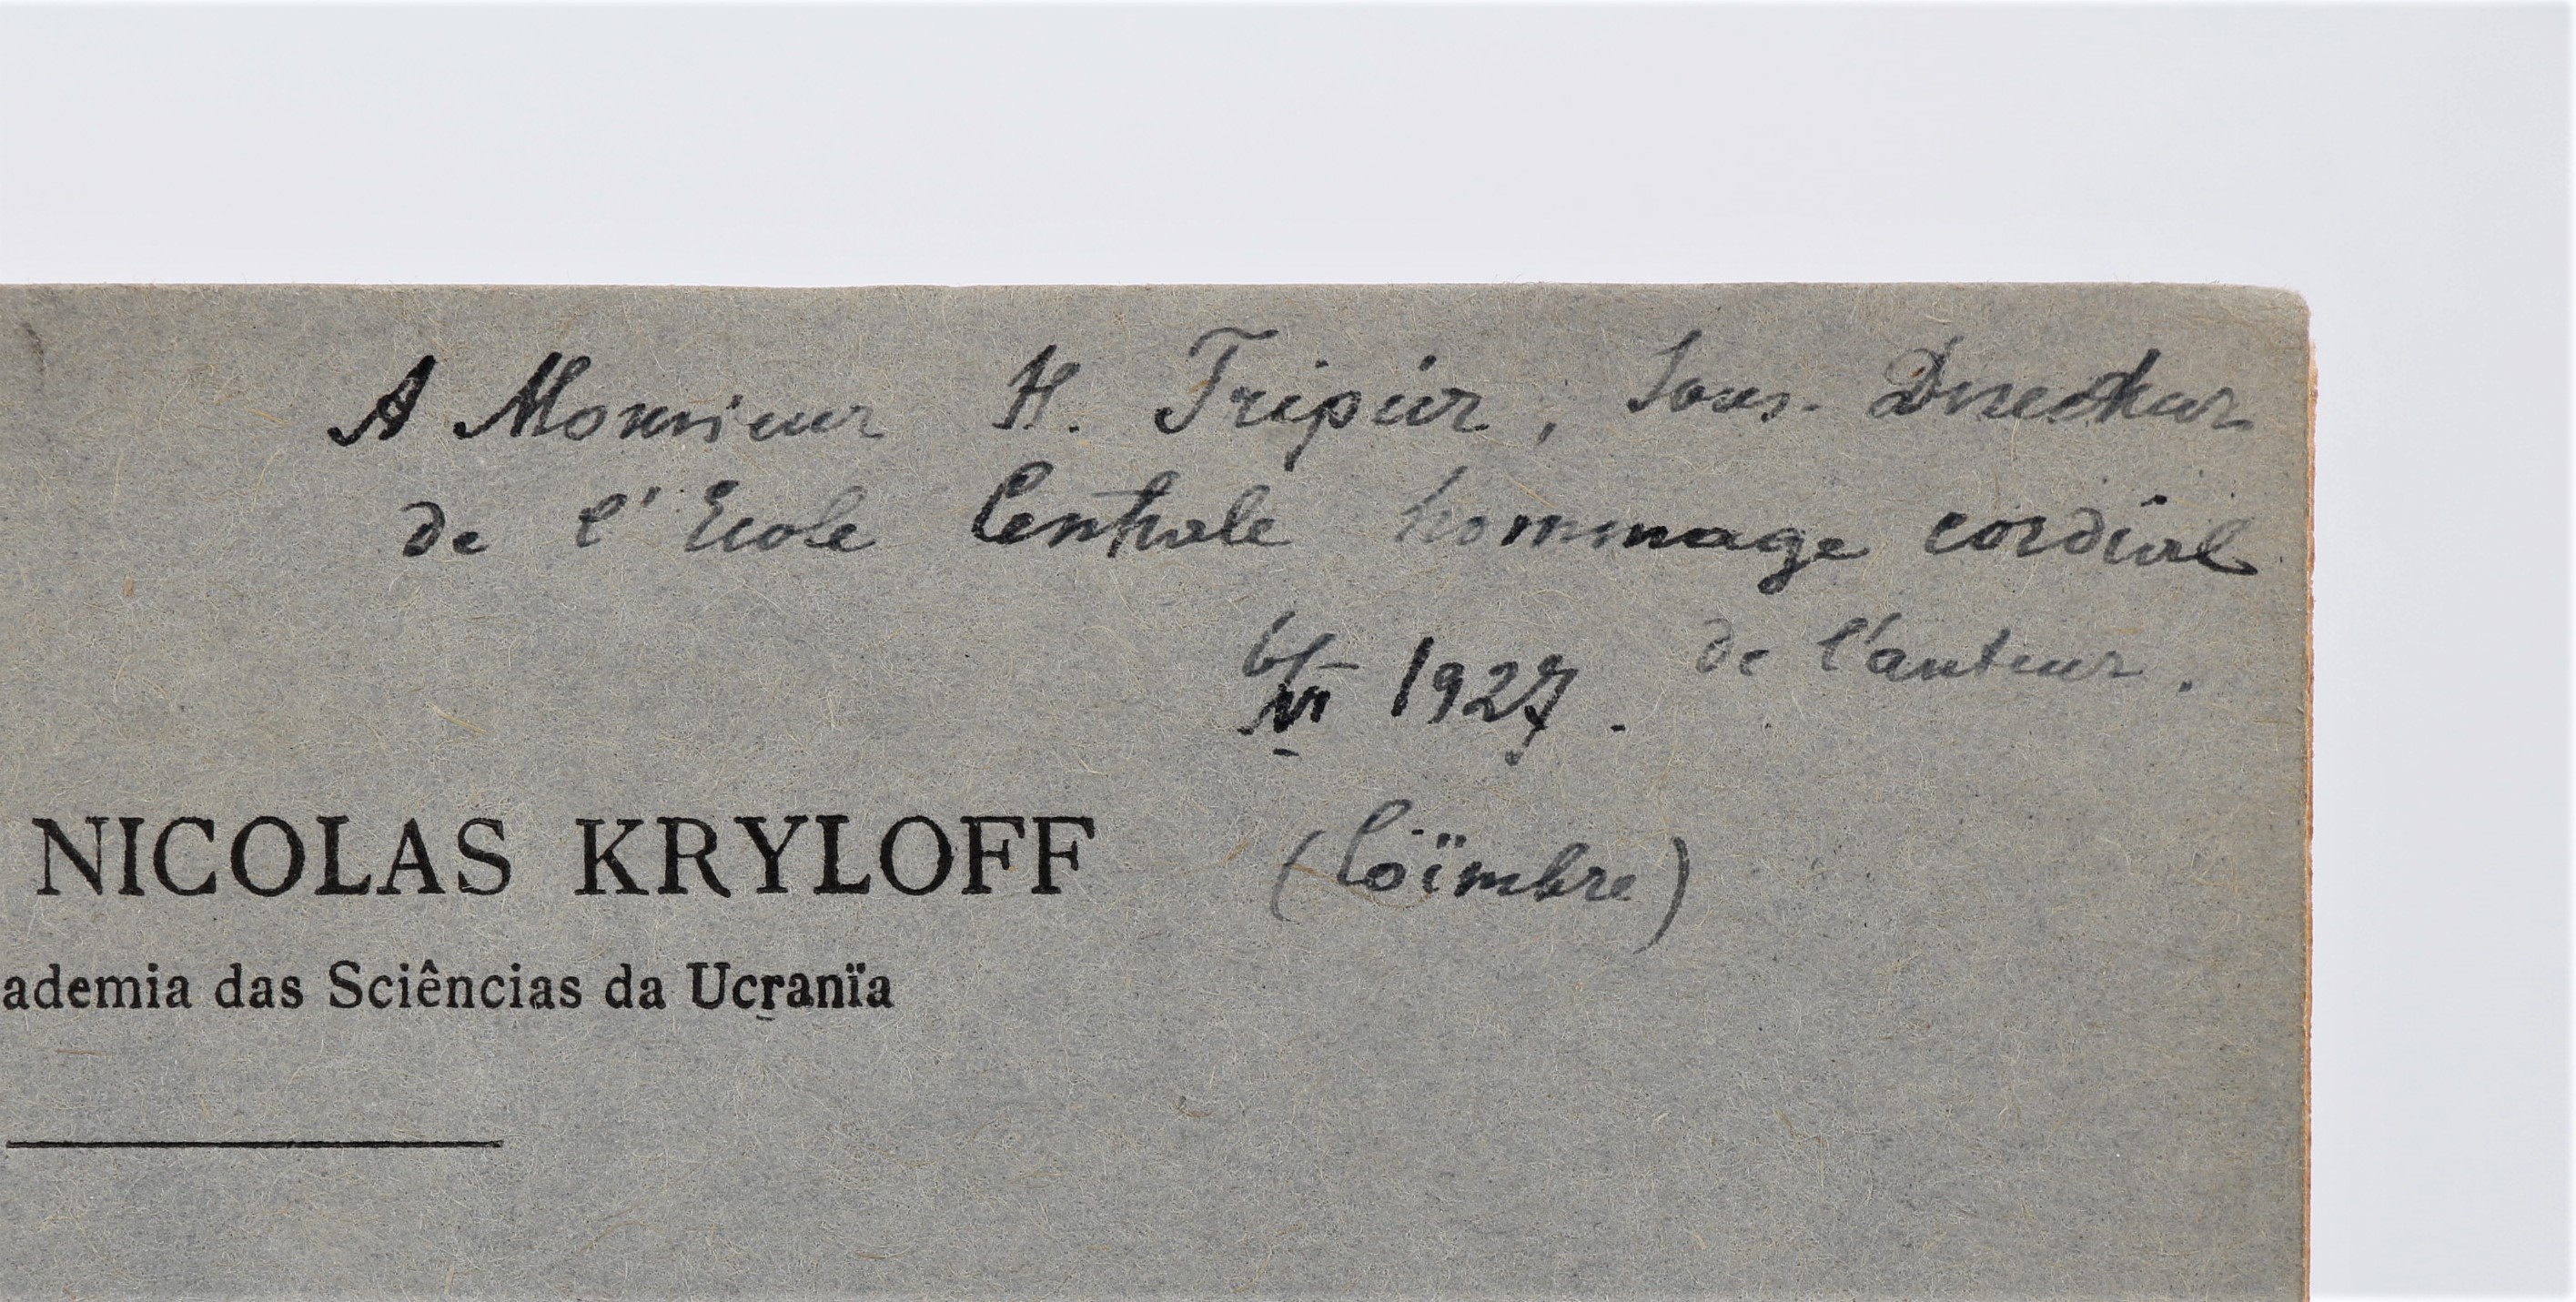 A Monsieur H. Tripier, Sous-Directeur
de l'Ecole Centrale hommage cordial
de l'auteur.
6/VI 1927.
(Coïmbre)
NICOLAS KRYLOFF
ademia das Sciências da Ucranïa